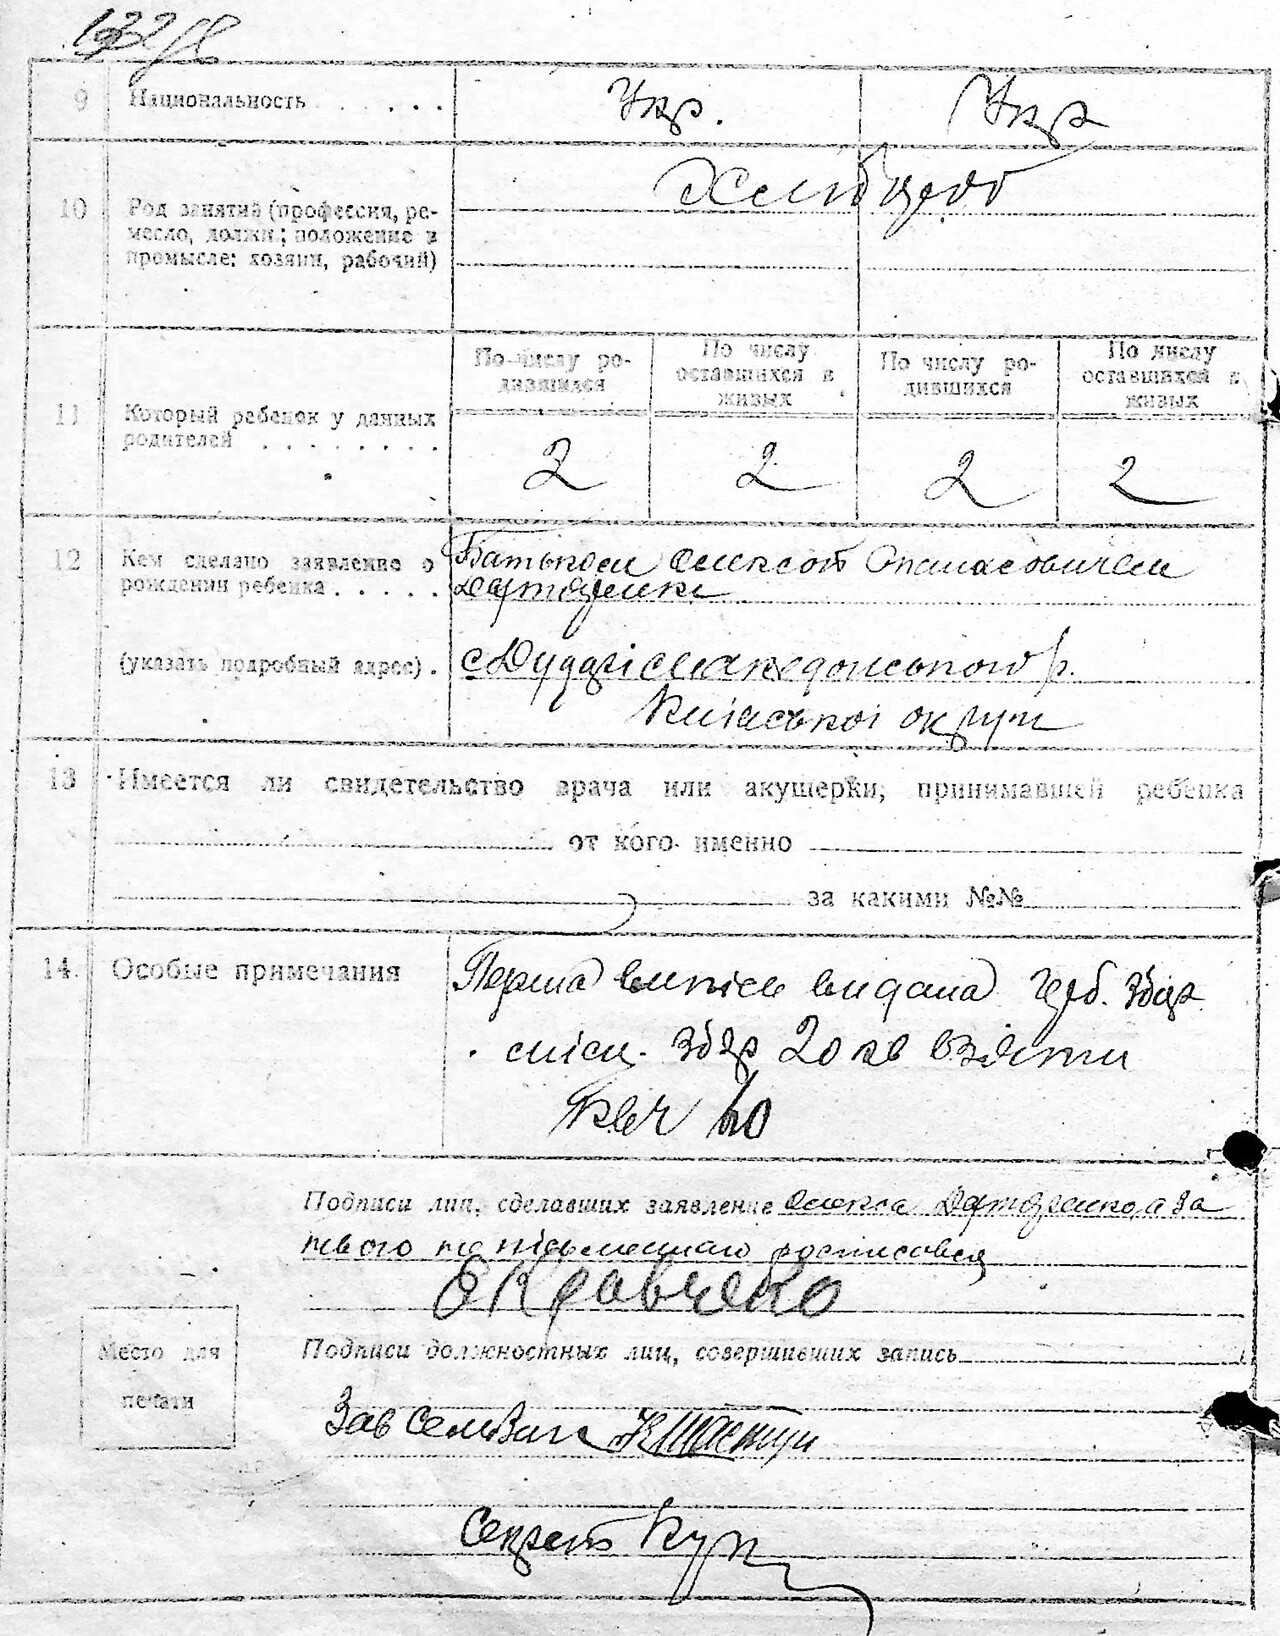 9 Национальность . . . . . Укр. Укр
10 Род занятий (профессия, ре-
месло, должн.; положение в
промысле: хозяин, рабочий)
Хлібороб
11 Который ребенок у данных
родителей . . . . . . . .
По числу ро-
дившихся
По числу
оставшихся в
живых
По числу ро-
дившихся
По числу
оставшихся в
живых
2 2 2 2
12 Кем сделано заявление о
рождении ребенка . . . . .
Батьком Олексой Опанасовичем
(указать подробный адрес) .
с Дударі Македонського р.
Київської округи
13 Имеется ли свидетельство врача или акушерки, принимавшей ребенка
от кого именно
за какими №№
14. Особые примечания
Перша випись видана герб. збір
місц. збір 20 ко взяти
Подписи лиц, сделавших заявление Олекса а за
нього не підьменного росписовся
Кравченко
Место для
печати
Подписи должностных лиц, совершивших запись
Зав
Секрет